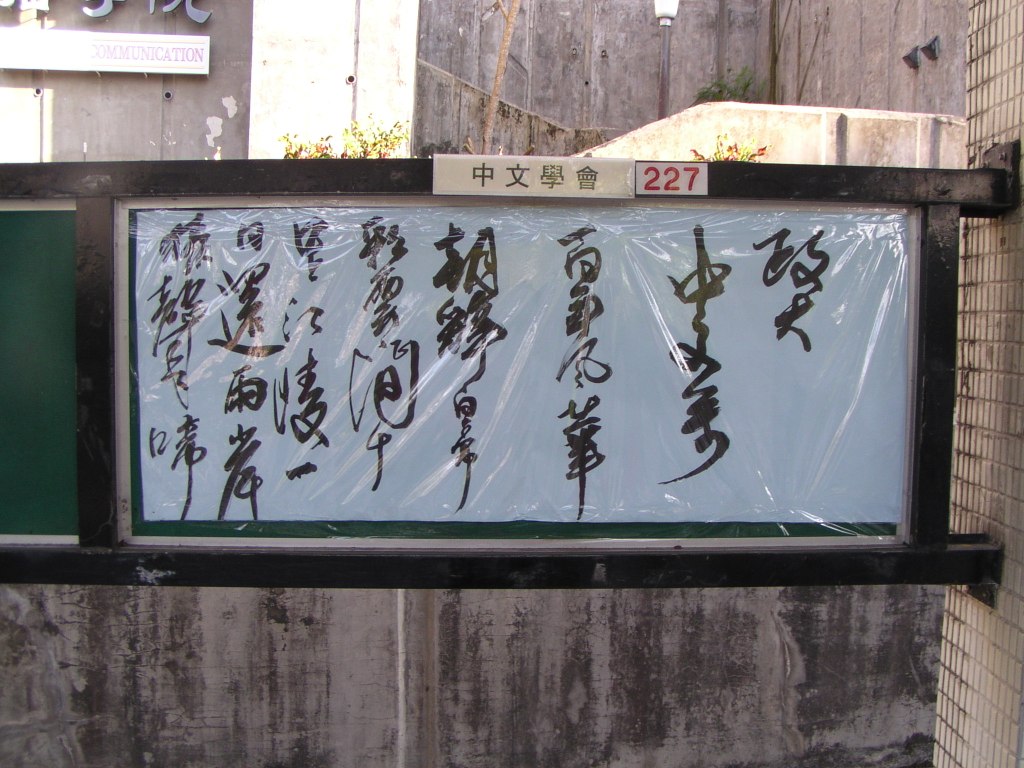 學院
COMMUNICATION
中文學會
227
政大
中文系
百年風華
朝辭白帝
彩雲間千
里江陵一
日還兩岸
猿聲啼